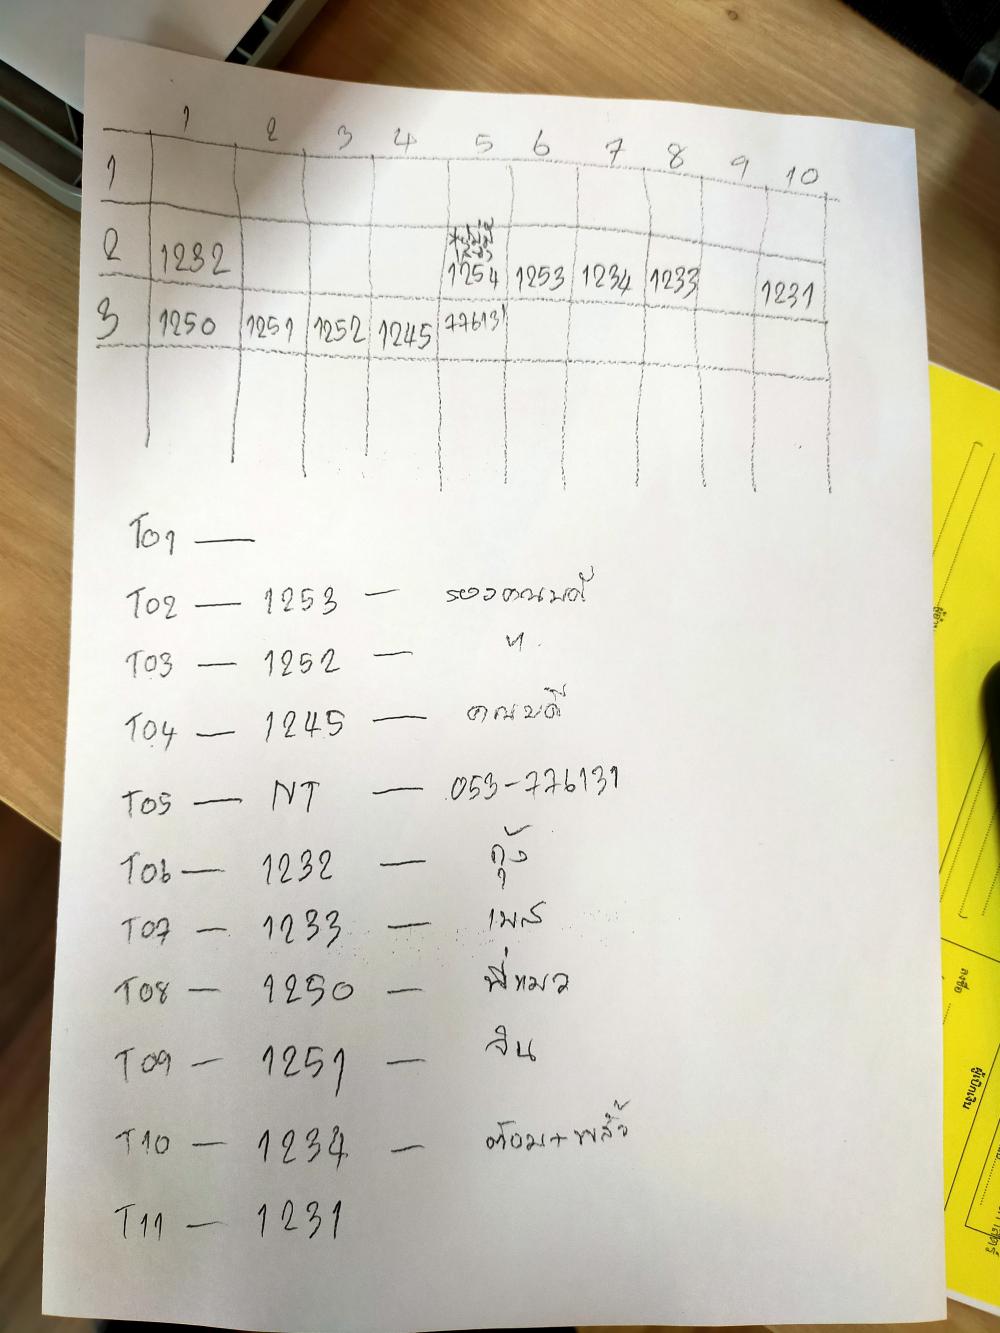 1 2 3 4 5 6 7 8 9 10
1
2 1232 1254 1253 1234 1233 1231
3 1250 1251 1252 1245 776131
T01 —
T02 — 1253 — รองคณบดี
T03 — 1252 — "
T04 — 1245 — คณบดี
T05 — NT — 053-776131
T06 — 1232 — กุ้ง
T07 — 1233 — เมส์
T08 — 1250 — พี่หมว
T09 — 1251 — จิน
T10 — 1234 — ต้อม+
T11 — 1231
ลงชื่อ
ผู้เบิกเงิน